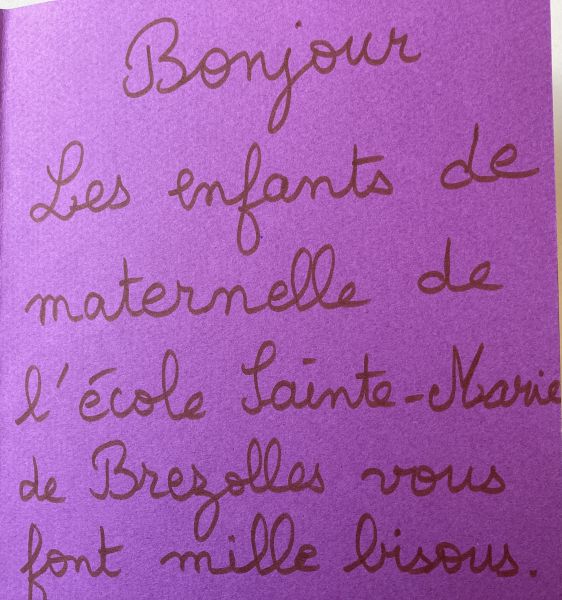 Bonjour
Les enfants de
maternelle de
l'école Sainte-Marie
de Brezolles vous
font mille bisous.